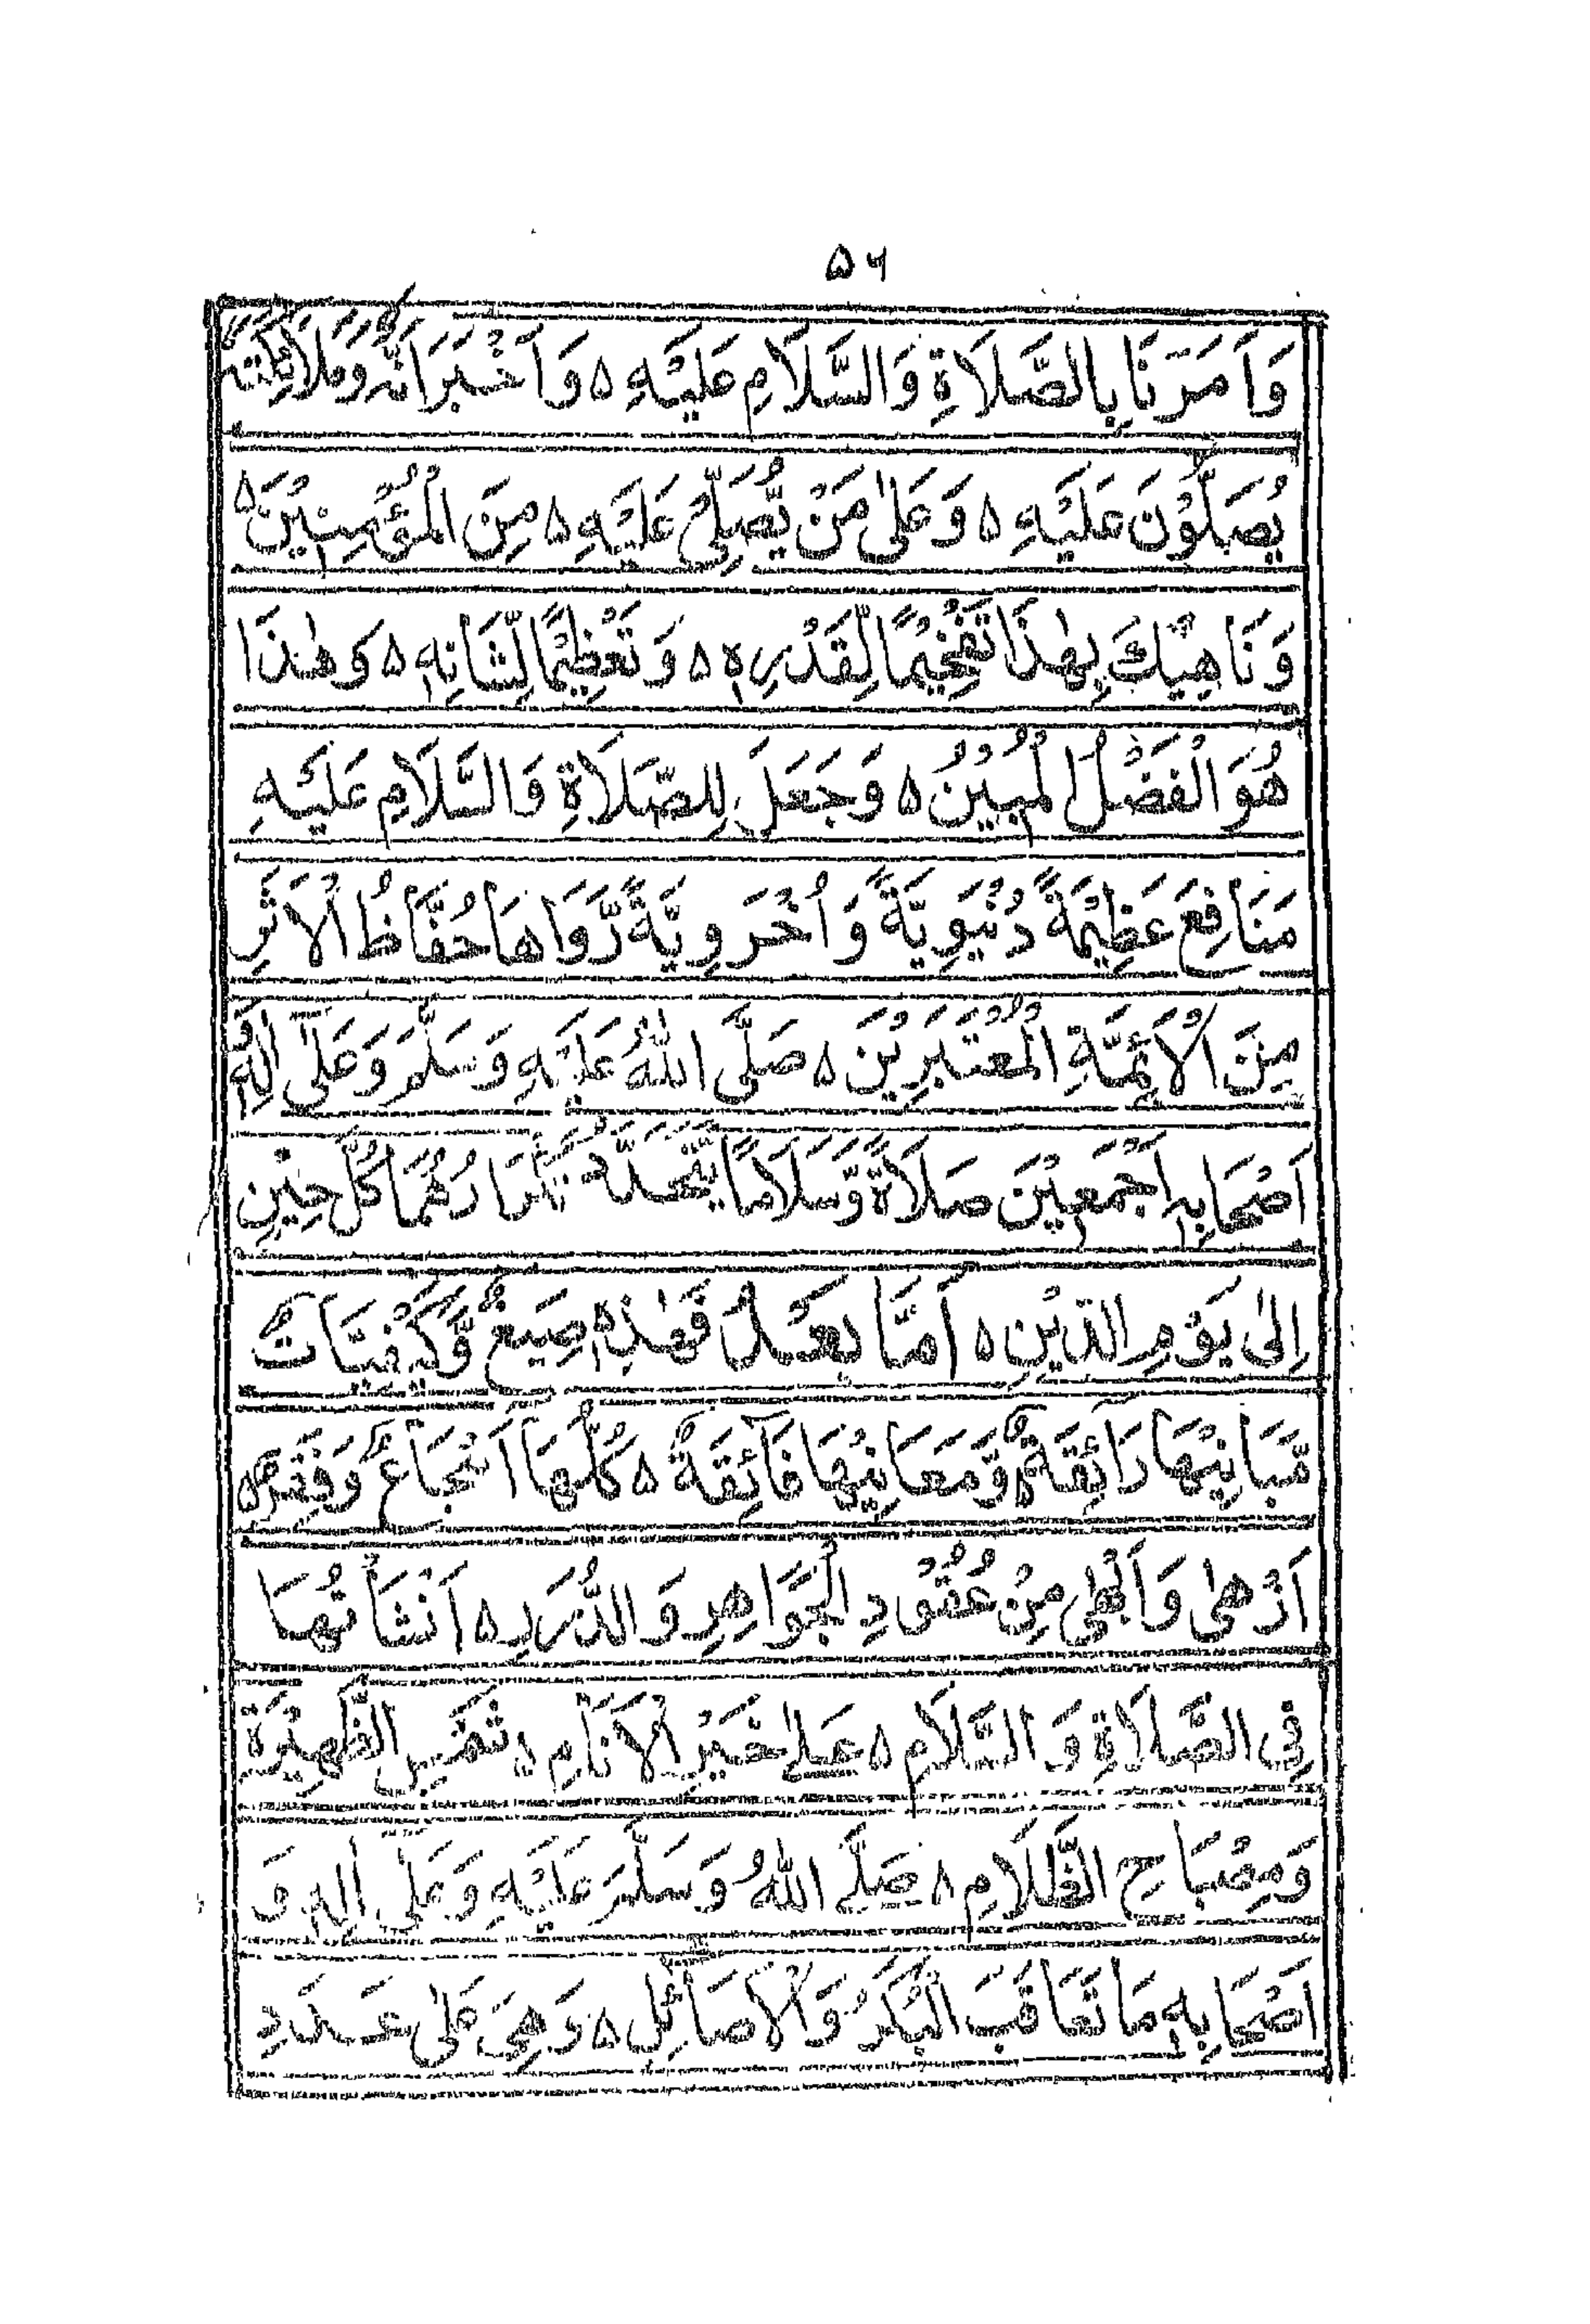 ۵۶
وَاَمَرَنَا بِالصَّلَاةِ وَالسَّلَامِ عَلَيْهِ ٥ وَاَخْبَرَ اَنَّهٗ وَمَلَائِكَتَهٗ
يُصَلُّوْنَ عَلَيْهِ ٥ وَعَلٰى مَنْ يُّصَلِّيْ عَلَيْهِ ٥ مِنَ الْمُؤْمِنِيْنَ ٥
وَنَاهِيْكَ بِهٰذَا تَفْخِيْمًا لِّقَدْرِهٖ ٥ وَتَعْظِيْمًا لِّشَانِهٖ ٥ وَهٰذَا
هُوَ الْفَضْلُ الْمُبِيْنُ ٥ وَجَعَلَ لِلصَّلَاةِ وَالسَّلَامِ عَلَيْهِ
مَنَافِعَ عَظِيْمَةً دُنْيَوِيَّةً وَاُخْرَوِيَّةً رَّوَاهَا حُفَّاظُ الْاَثَرِ
مِنَ الْاَئِمَّةِ الْمُعْتَبَرِيْنَ ٥ صَلَّى اللّٰهُ عَلَيْهِ وَسَلَّمَ وَعَلٰى اٰلِهٖ وَ
اَصْحَابِهٖ اَجْمَعِيْنَ صَلَاةً وَّسَلَامًا كُلَّ حِيْنٍ
اِلٰى يَوْمِ الدِّيْنِ ٥ اَمَّا بَعْدُ فَهٰذِهٖ صِيَغٌ وَّكَيْفِيَّاتٌ
مَّبَانِيْهَا رَائِقَةٌ ٥ وَّمَعَانِيْهَا فَائِقَةٌ ٥ كُلُّهَا اَسْجَاعٌ وَفِقَرٌ ٥
اَزْهٰى وَاَبْهٰى مِنْ عُقُوْدِ الْجَوَاهِرِ وَالدُّرَرِ ٥ اَنْشَأْتُهَا
فِى الصَّلَاةِ وَالسَّلَامِ ٥ عَلٰى خَيْرِ الْاَنَامِ ٥ شَمْسِ الظَّهِيْرَةِ
وَمِصْبَاحِ الظَّلَامِ ٥ صَلَّى اللّٰهُ وَسَلَّمَ عَلَيْهِ وَعَلٰى اٰلِهٖ وَ
اَصْحَابِهٖ مَا تَعَاقَبَ الْبُكَرُ وَالْاَصَائِلُ ٥ وَهِيَ عَلٰى عَدَدِ